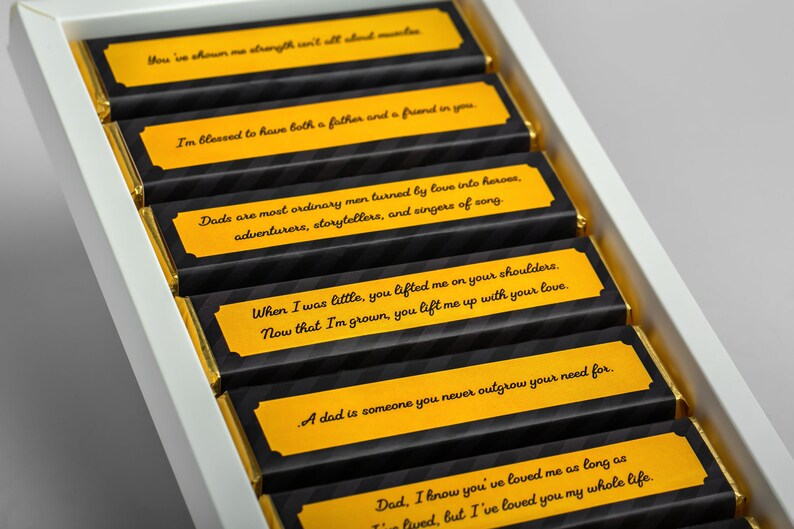 You've shown me strength isn't all about muscles.
I'm blessed to have both a father and a friend in you.
Dads are most ordinary men turned by love into heroes,
adventurers, storytellers, and singers of song.
When I was little, you lifted me on your shoulders.
Now that I'm grown, you lift me up with your love.
.A dad is someone you never outgrow your need for.
Dad, I know you've loved me as long as
I've lived, but I've loved you my whole life.